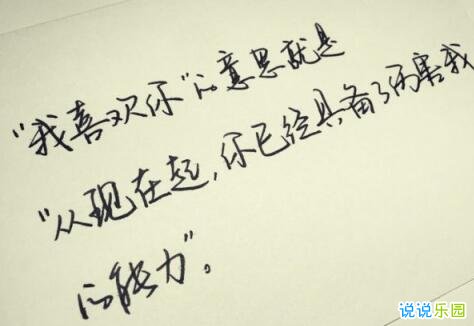 “我喜欢你”的意思就是
“从现在起，你已经具备了伤害我
的能力”。
说说乐园